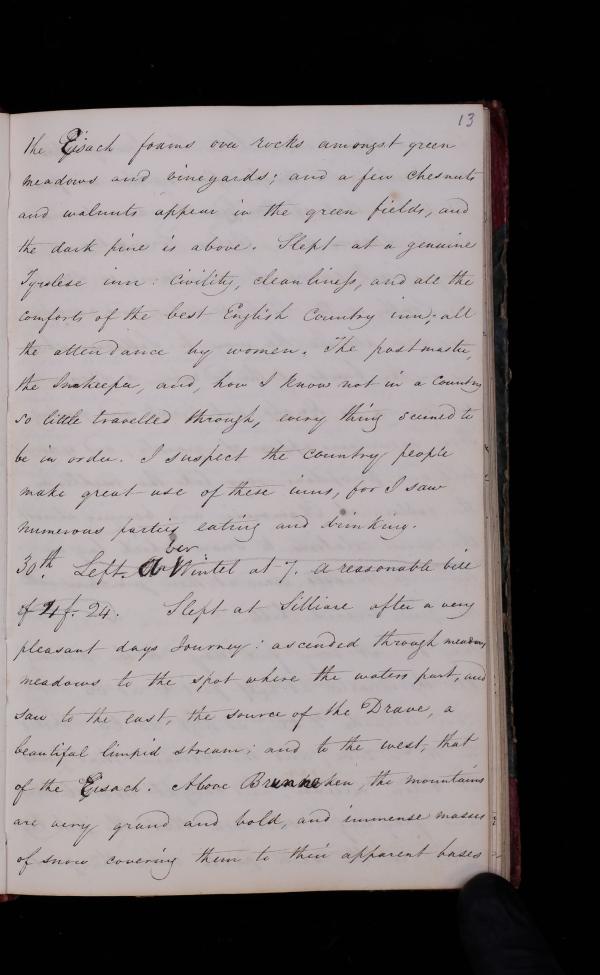 13
the Eisach foams over rocks amongst green
meadows and vineyards; and a few chesnuts
and walnuts appear in the green fields, and
the dark pine is above. Slept at a genuine
Tyrolese inn: Civility, cleanliness, and all the
comforts of the best English Country inn; all
the attendance by women. The postmaster,
the Innkeeper, and, how I know not in a Country
so little travelled through, every thing seemed to
be in order. I suspect the country people
make great use of these inns, for I saw
numerous parties eating and drinking.
30th. Left ber Wintel at 7. a reasonable bill
of 4f. 24. Slept at Silliare after a very
pleasant days Journey: ascended through meadows
meadows to the spot where the waters part, and
saw to the east, the source of the Drave, a
beautiful limpid stream; and to the west, that
of the Eisach. Above the mountains
are very grand and bold, and immense masses
of snow covering them to their apparent bases